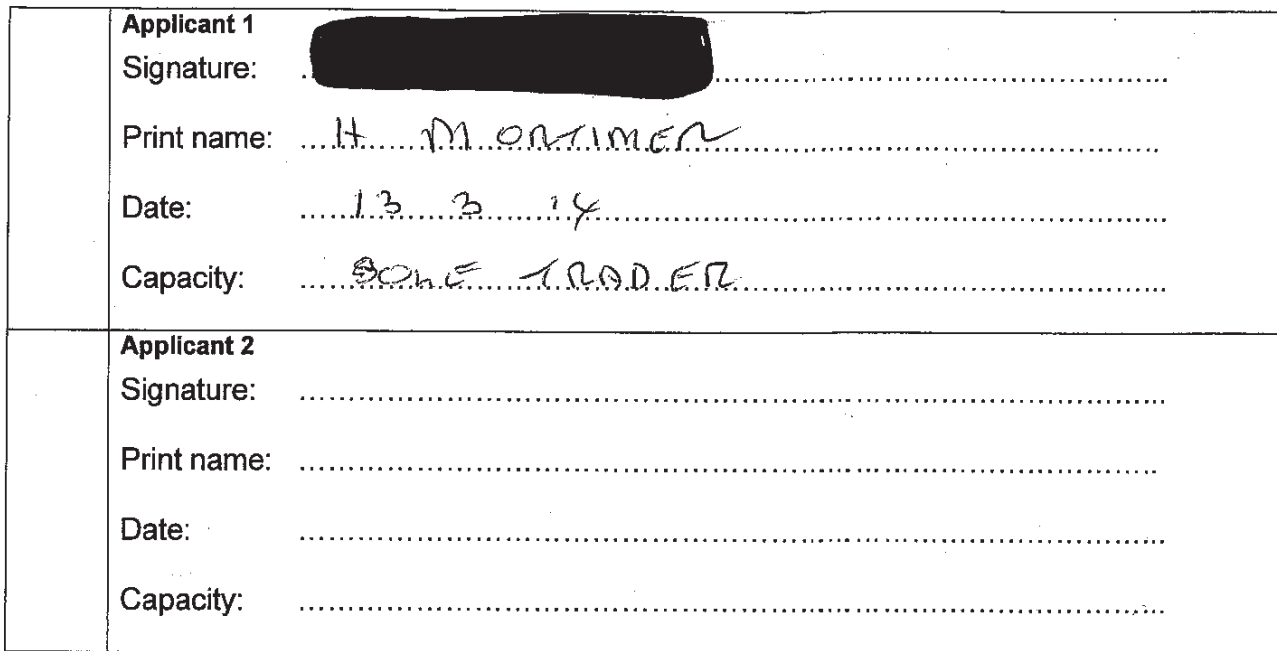 Applicant 1
Signature:
Print name: H MORTIMER
Date: 13 3 14
Capacity: SOLE TRADER
Applicant 2
Signature:
Print name:
Date:
Capacity: